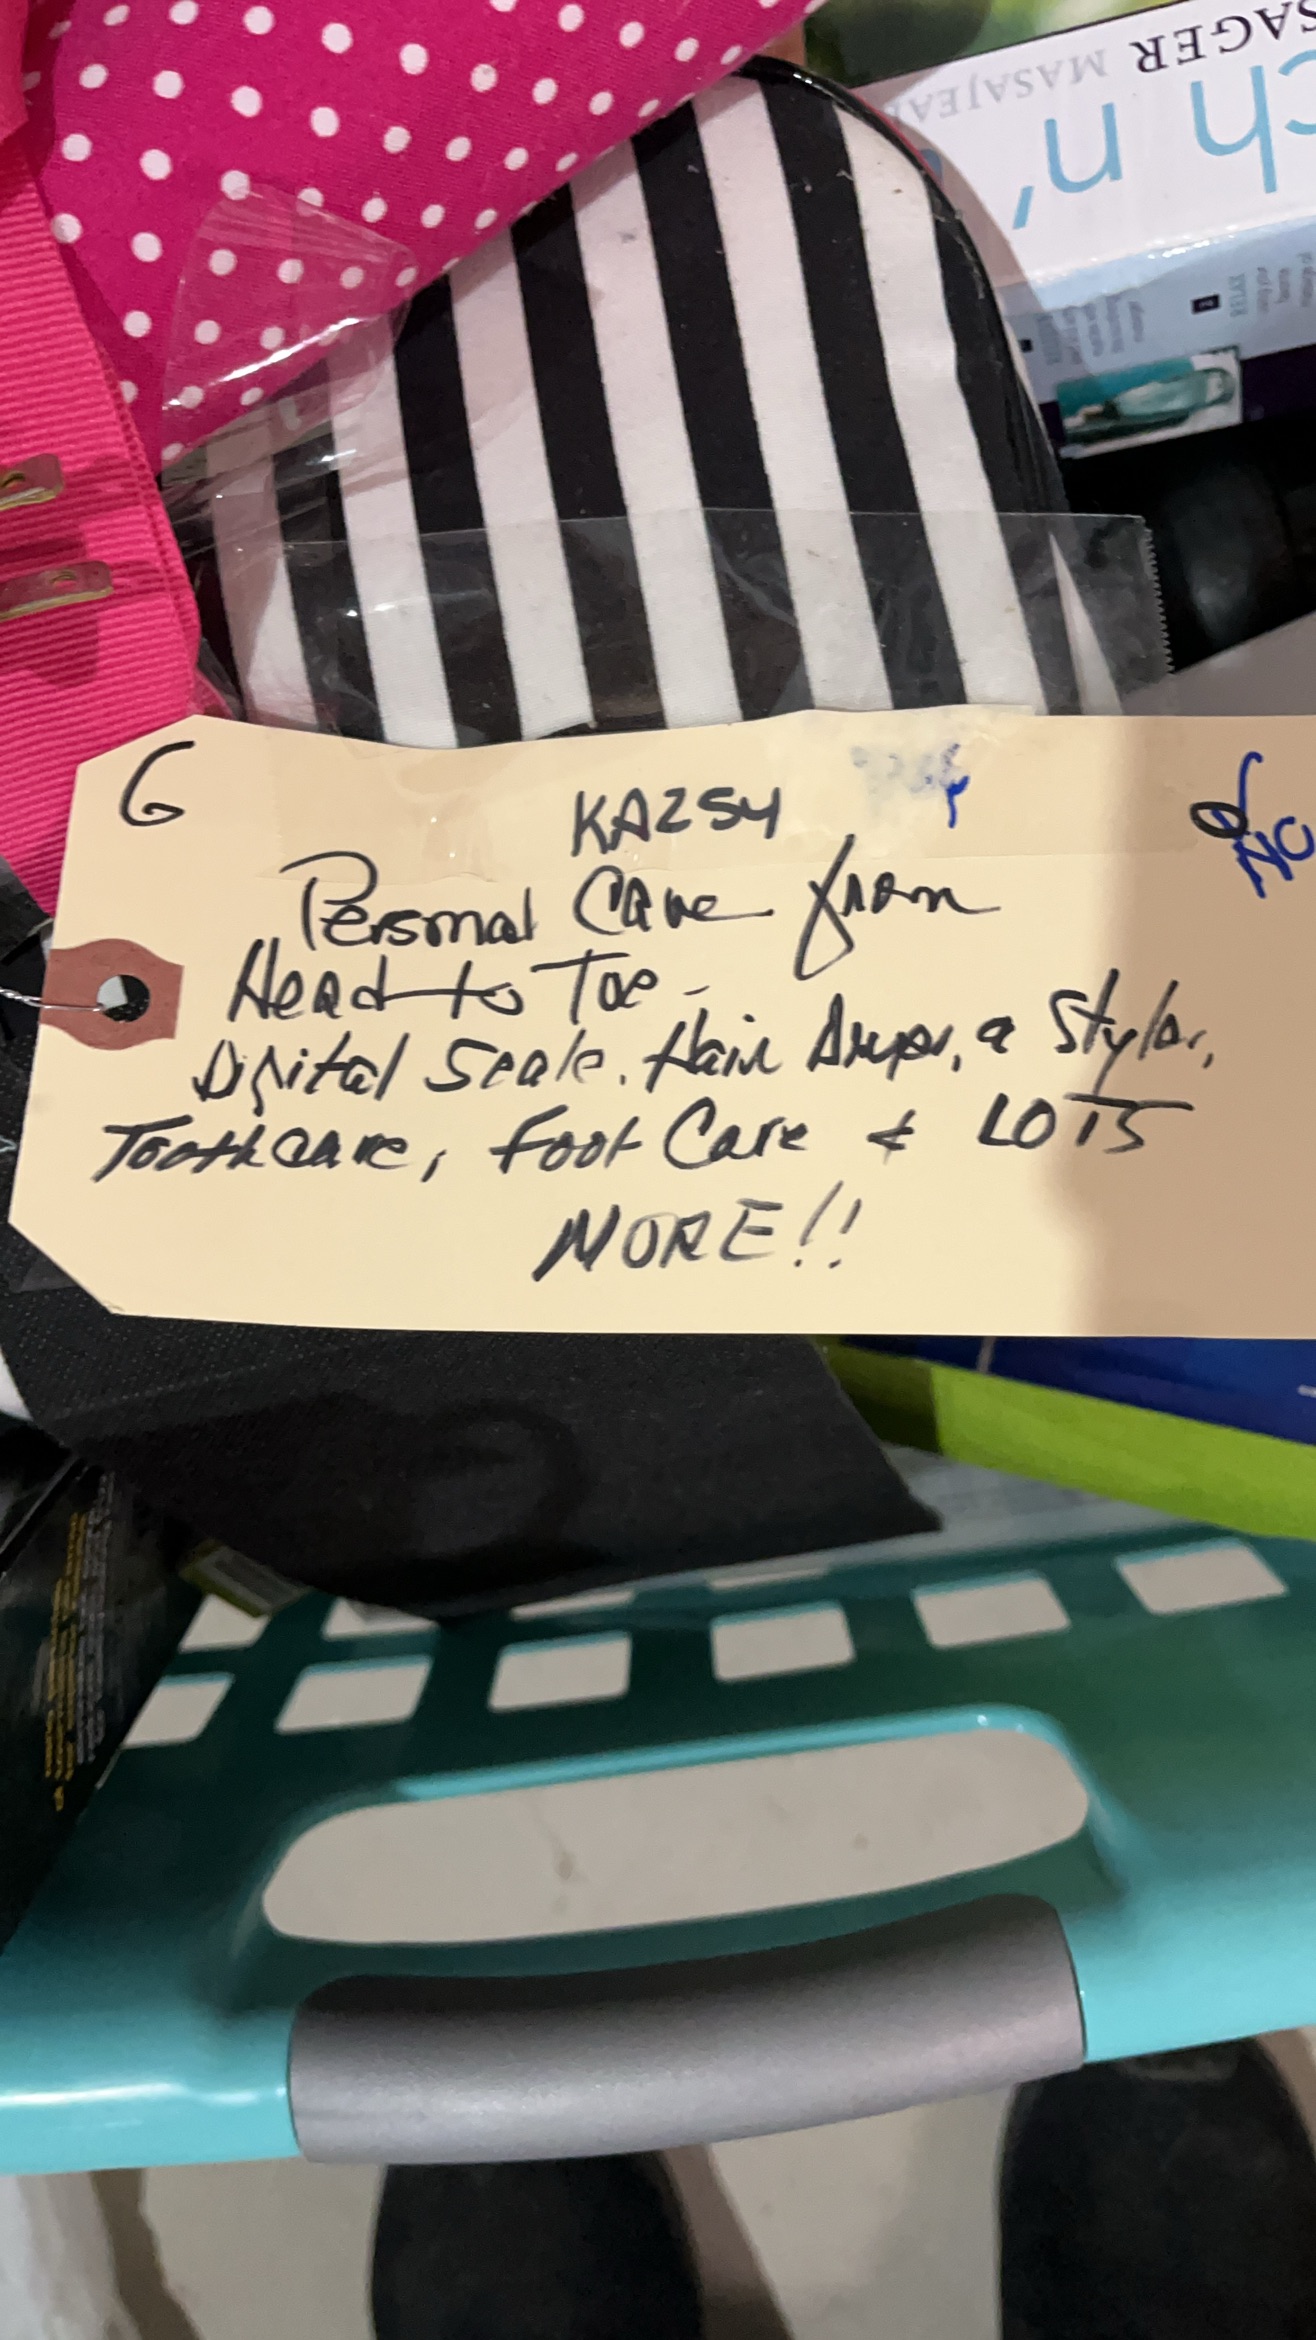 SAGER
MASAJEA
ch n'
G
KA254
Personal Care from
Head to Toe -
Digital Scale, Hair Dryer, a Styler,
Toothcare, Foot Care & LOTS
MORE!!